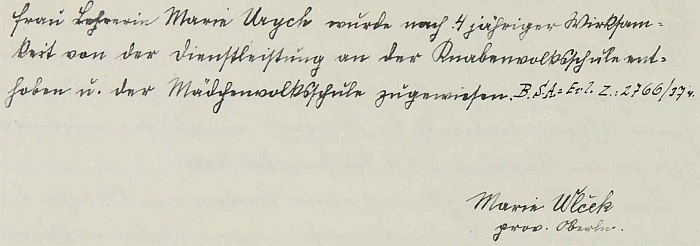 Frau Lehrerin Marie Urych wurde nach 4 jähriger Wirksam=
keit von der Dienstleistung an der Knabenvolksschule ent=
hoben u. der Mädchenvolksschule zugewiesen. B.S.A.= Erl. Z.: 2766/37.
Marie Wlček
prov. Oberln.